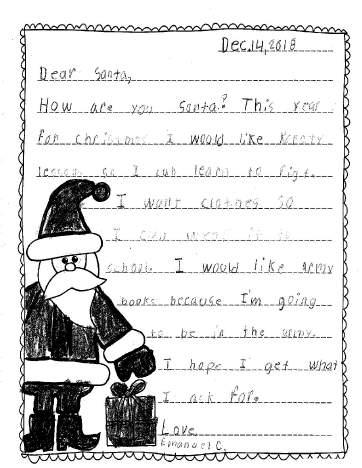 Dec.14,2018
Dear Santa,
How are you Santa? This year
for christmas I would like Karaty
lessons so I can learn to fight.
I want clothes so
I can wear it to
school. I would like army
books because I'm going
to be in the army.
I hope I get what
I ask for.
Love
Emanuel C.